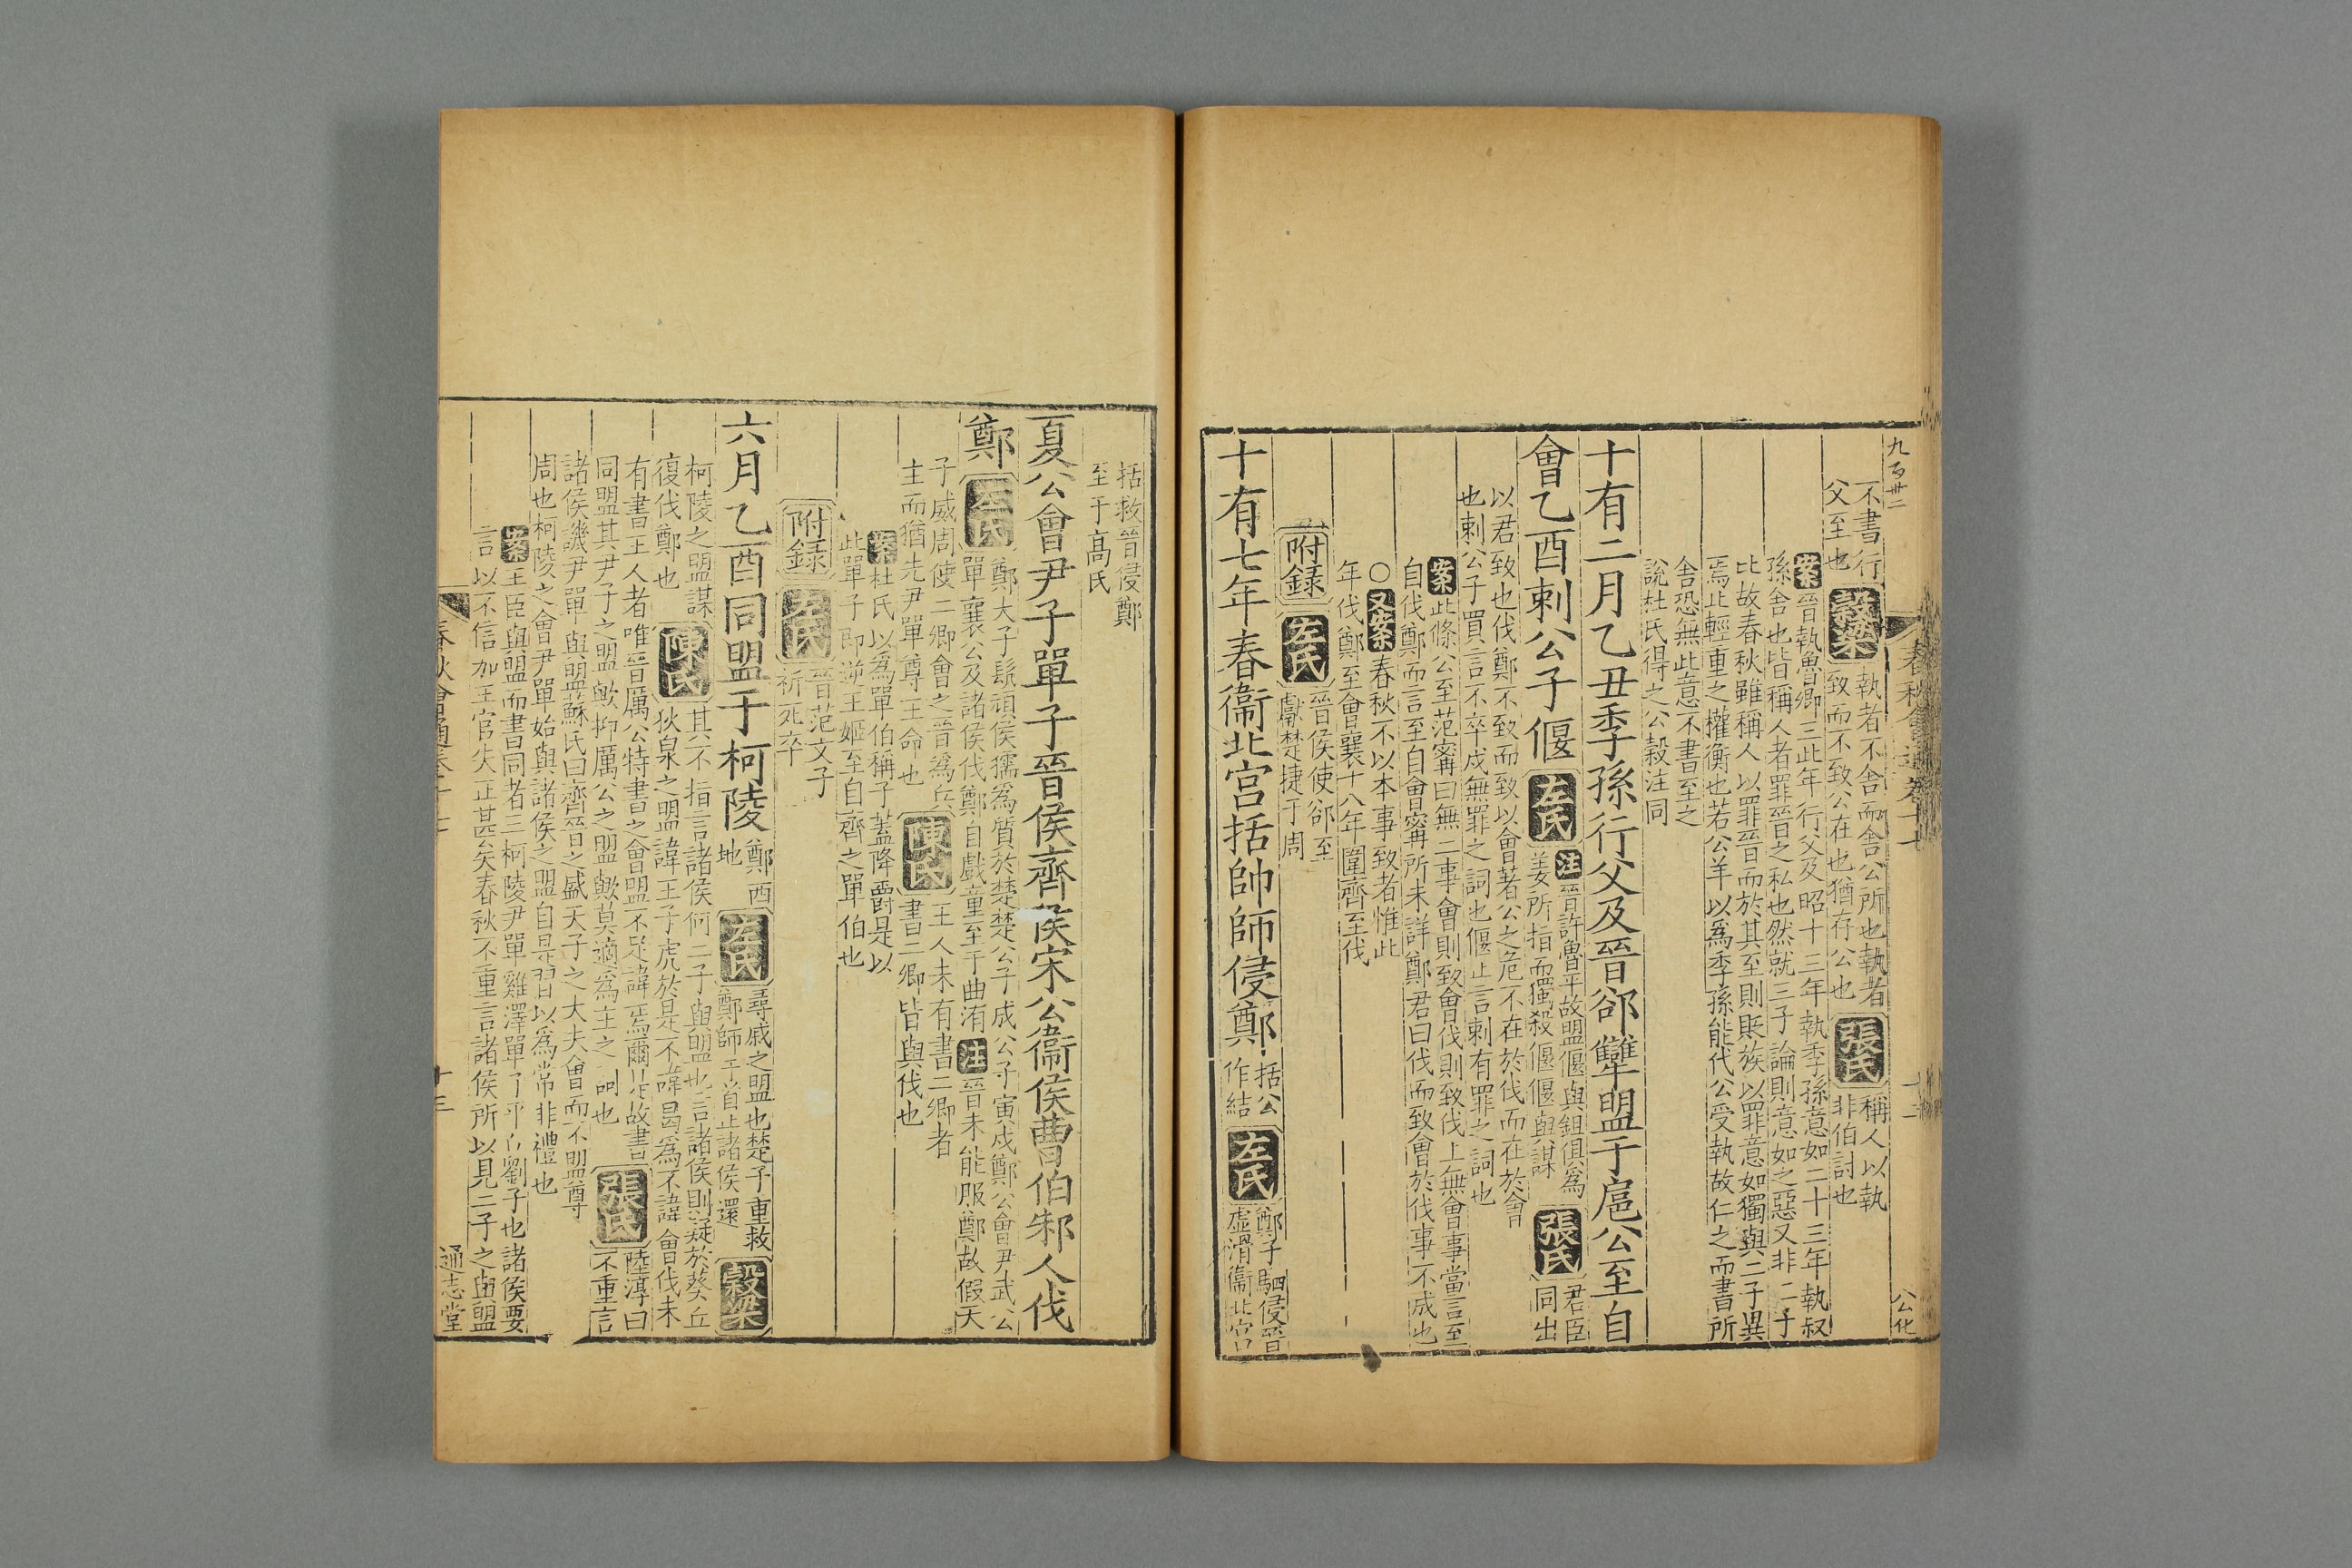 九百卅二
不書行
父至也
穀梁
執者不舍而舍公所也執者
致而不致公在也猶存公也
張氏
稱人以執
非伯討也
案晉執魯卿三此年行父及昭十三年執季孫意如二十三年執叔
孫舍也皆稱人者罪晉之私也然就三子論則意如之惡又非二子
比故春秋雖稱人以罪晉而於其至則貶族以罪意如獨與二子異
焉此輕重之權衡也若公羊以為季孫能代公受執故仁之而書所
舍恐無此意不書至之
說杜氏得之公穀注同
十有二月乙丑季孫行父及晉郤犨盟于扈公至自
會乙酉刺公子偃
左氏
注晉許魯平故盟偃與鉏俱為
姜所指而獨殺偃偃與謀
張氏
君臣
同出
以君致也伐鄭不致而致以會著公之危不在於伐而在於會
也刺公子買言不卒戍無罪之詞也偃止言刺有罪之詞也
案此條公至范甯曰無二事會則致會伐則致伐上無會事當言至
自伐鄭而言至自會甯所未詳鄭君曰伐而致會於伐事不成也
○又案春秋不以本事致者惟此
年伐鄭至會襄十八年圍齊至伐
附錄
左氏
晉侯使郤至
獻楚捷于周
十有七年春衞北宮括帥師侵鄭
括公
作結
左氏
鄭子駟侵晉
虛滑衞北宮
括救晉侵鄭
至于高氏
夏公會尹子單子晉侯齊侯宋公衞侯曹伯邾人伐
鄭
左氏
鄭大子髡頑侯獳為質於楚楚公子成公子寅戍鄭公會尹武公
單襄公及諸侯伐鄭自戲童至于曲洧注晉未能服鄭故假天
子威周使二卿會之晉為兵
主而猶先尹單尊王命也
陳氏
王人未有書二卿者
書二卿皆與伐也
案杜氏以為單伯稱子蓋降爵是以
此單子即逆王姬至自齊之單伯也
附錄
左氏
晉范文子
祈死卒
六月乙酉同盟于柯陵
鄭西
地
左氏
尋戚之盟也楚子重救
鄭師于首止諸侯還
穀梁
柯陵之盟謀
復伐鄭也
陳氏
其不指言諸侯何二子與盟也言諸侯則疑於葵丘
狄泉之盟諱王子虎於是不諱曷為不諱會伐未
有書王人者唯晉厲公特書之會盟不足諱焉爾故書
同盟其尹子之盟歟抑厲公之盟歟莫適為主之詞也
張氏
陸淳曰
不重言
諸侯譏尹單與盟蘇氏曰齊晉之盛天子之大夫會而不盟尊
周也柯陵之會尹單始與諸侯之盟自是習以為常非禮也
案王臣與盟而書同者三柯陵尹單雞澤單子平丘劉子也諸侯要
言以不信加王官失正甚矣春秋不重言諸侯所以見二子之與盟
春秋會通卷十七
十三
通志堂